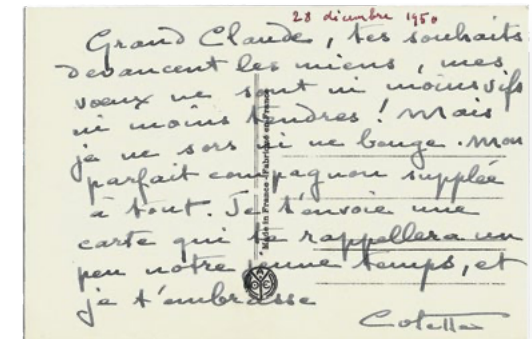 28 décembre 1950
Grand Claude, tes souhaits
devancent les miens, mes
voeux ne sont ni moins vifs
ni moins tendres ! Mais
je ne sors ni ne bouge. Mon
parfait compagnon supplée
à tout. Je t'envoie une
carte qui te rappellera un
peu notre jeune temps, et
je t'embrasse
Colette
Made in France - Fabriqué en France